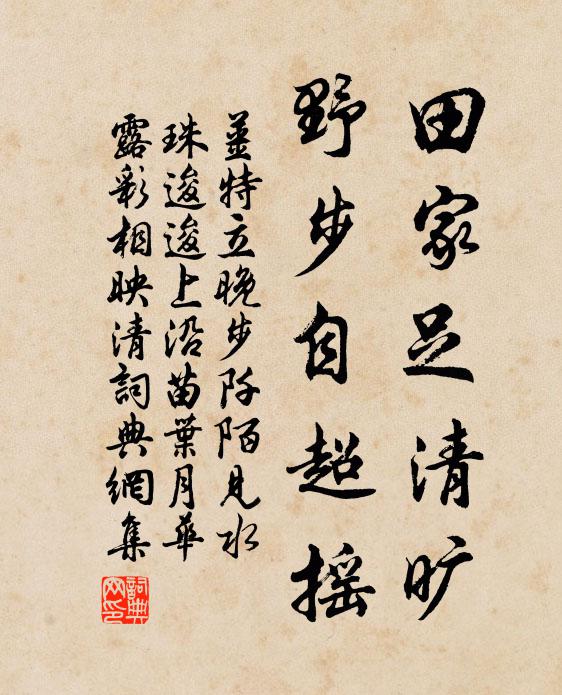 田家足清旷
野步自超摇
姜特立晚步阡陌见水
珠逡逡上沿苗葉月華
露彩相映清詞典網集
詞典
网印